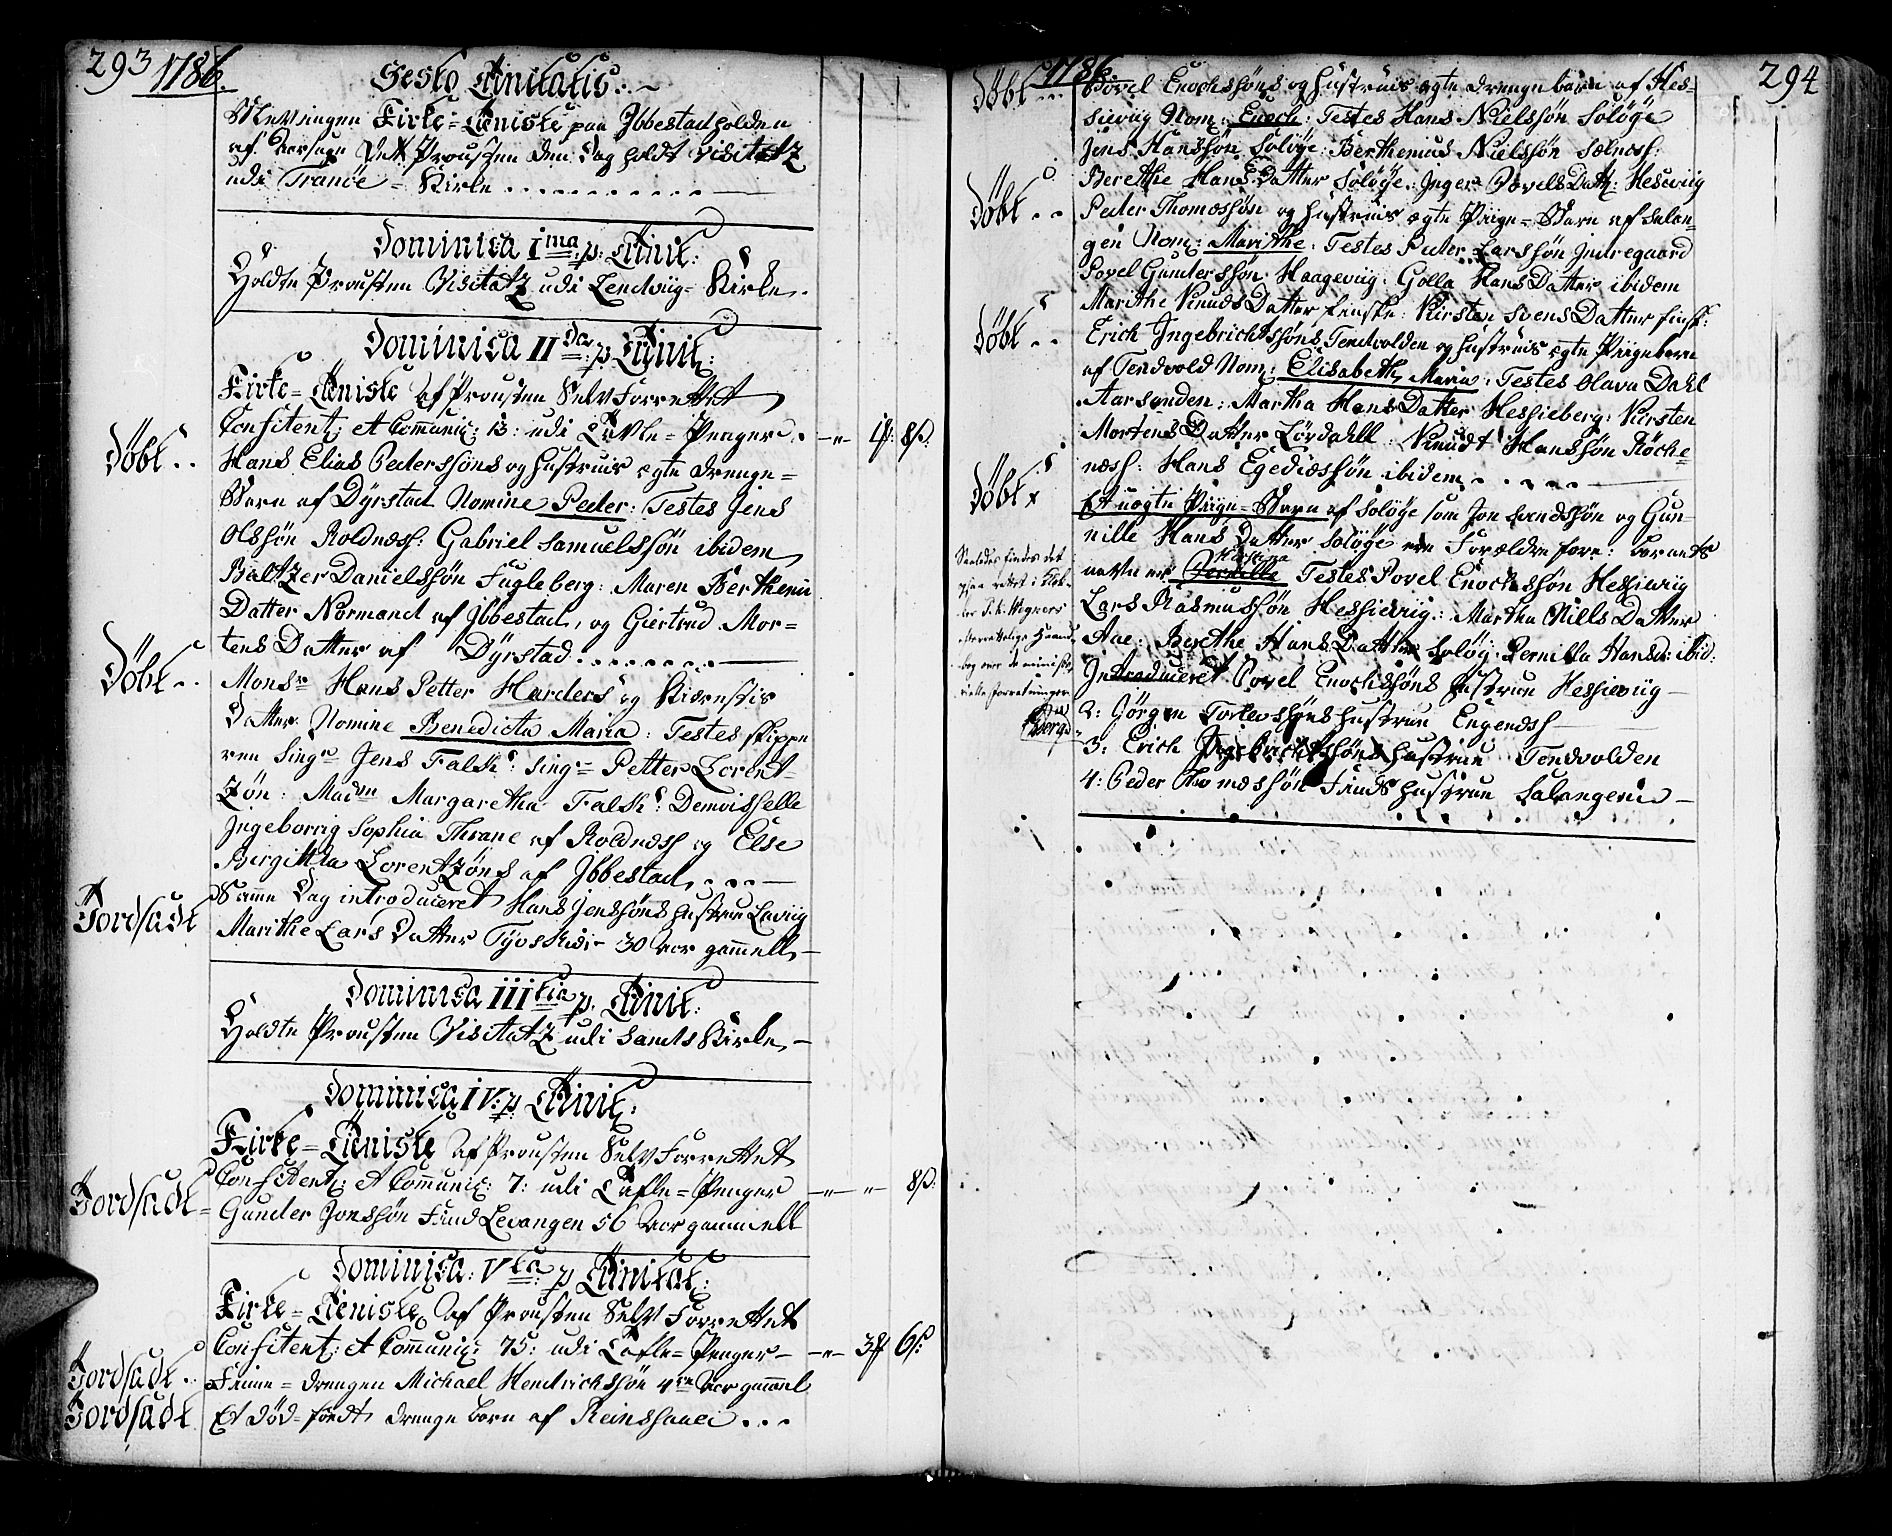 293 1786.
Festo Trinitatis:
Ingen Kirke-Tieniste paa Ibbestad holden
af Aarsage Prousten den Dag holdt Visitatz
udi Tranöe-Kirke
Dominica Ima p: Trinit:
Holdte Prousten Visitatz udi Lendviig-Kirke.
Dominica IIda p: Trinit:
Kirke-Tieniste af Prousten Selv Forrettet
Confitent: et Communic: 13: udi Tavle-Penger 1 8ß:
Döbt..
Hans Elias Pederssöns og Hustruis ægte Drenge-
Barn af Dyrstad Nomine Peder: Testes Jens
Olssön Roldnæss: Gabriel Samuelssön ibidem
Baltzer Danielssön Fugleberg: Maren Berthemi
Datter Normand af Ibbestad, og Giertrud Mor-
tens Datter af Dyrstad
Döbt..
Monsr Hans Petter Harders og Kiærestis
Datter Nomine Benedicta Maria: Testes Skippe
ren Singr Jens Falk: Singr Petter Lorent-
zön: Madm Margaretha Falk: Demoisselle
Ingeborrig Sophia Thrane af Roldnæss og Else
Birgitta Lorentzöns af Ibbestad
Samme Dag introduceret Hans Jenssöns Hustrue Laviig
Jordfædt
Marithe Lars Datter Tyvskid 30 Aar gammell
Dominica IIItia p. Trinit:
Holdte Prousten Visitatz udi Sands Kirke
Dominica IV: p Trinit:
Kirke-Tieniste af Prousten Selv Forrettet
Confitent: et Communic: 7: udi Tafle-Penger 8ß:
Jordfædt
Gunder Jonssön Find Levangen 56 Aar gammell
Dominica: Vta: p Trinitat:
Kirke-Tieniste af Prousten Selv Forrettet
Confitent: et Communic: 75: udi Tafle-Penger 3 6ß:
Jordfædt..
Finne-Drengen Michael Hendrichssön Aar gammel
Jordfædt
Et Död-födt Drenge barn af Reinshaue
1786 294
Döbt..
Povel Enochssöns og Hustruis ægte Drengebarn af Hes-
sieviig Nom: Enoch: Testes Hans Nielssön Solöye
Jens Hanssön Solöye: Berthemus Nielssön Sælnæss:
Berethe Hans Datter Solöye: Inger Povels Datt: Hesieviig
Döbt..
Peder Thomessön og Hustruis ægte Piige-Barn af Salan-
gen Nom: Marithe: Testes Peder Larssön Indregaard
Povel Gunderssön Haageviig: Golla Hans Datter ibidem
Marithe Knuds Datter: Kirsten Svens Datter
Döbt..
Erich Ingebrichtssöns Tendvolden og Hustruis ægte Piigebarn
af Tendvold Nom: Elisabeth Maria: Testes Olava Dahl
Aarsanden: Martha Hans Datter Hessieberg: Kirsten
Mortens Datter Lördahll: Knudt Hanssön Röcke-
næss: Hans Egediæssön ibidem
Döbt
Et uægte Piige-Barn af Solöye som Jon Svendssön og Gun-
nille Hans Datter Solöye ere Forældre fore: barnets
navn er Pernille Testes Povel Enochssön Hessieviig
Lars Rasmussön Hessieviig: Martha Nills Datter
Aae: Berethe Hans Datter Solöy: Pernilla Hansd: ibid:
Introduceret Povel Enochssöns Hustrue Hessieviig
2: Jörgen Hustrue Engenæss
3: Erich Ingebrichtssöns Hustrue Tendvolden
4: Peder Thomessön Finds Hustrue Salangen
Saaledes findes det